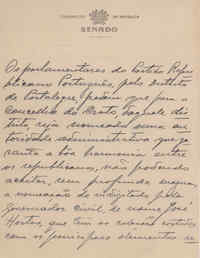 CONGRESSO DA REPÚBLICA
SENADO
Os parlamentares do Partido Repu-
blicano Português, pelo districto
de Portalegre, pedem que para o
concelho do Crato, daquele dis-
tricto seja nomeada uma au-
toridade administrativa que ga-
ranta a boa harmonia entre
os republicanos, não podendo
aceitar, sem profunda magua,
a nomeação do indigitado pelo
governador civil, de nome José
que tem as relações cortadas
com os principais elementos re-